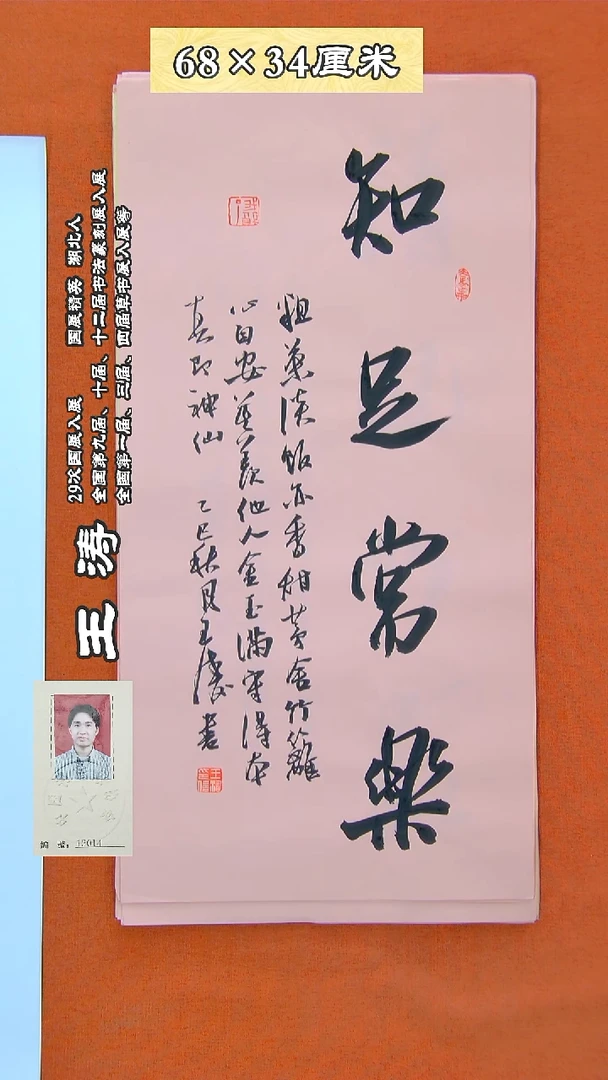 68×34厘米
知足常樂
粗茶淡飯亦香甜茅舍竹籬
心自安莫羨他人金玉滿堂得本
真即神仙 乙巳秋月王濤書
29次国展入展 国展精英 湖北人
全国第九届、十届、十二届书法篆刻展入展
全国第一届、三届、四届草书展入展等
王涛
编号：12014